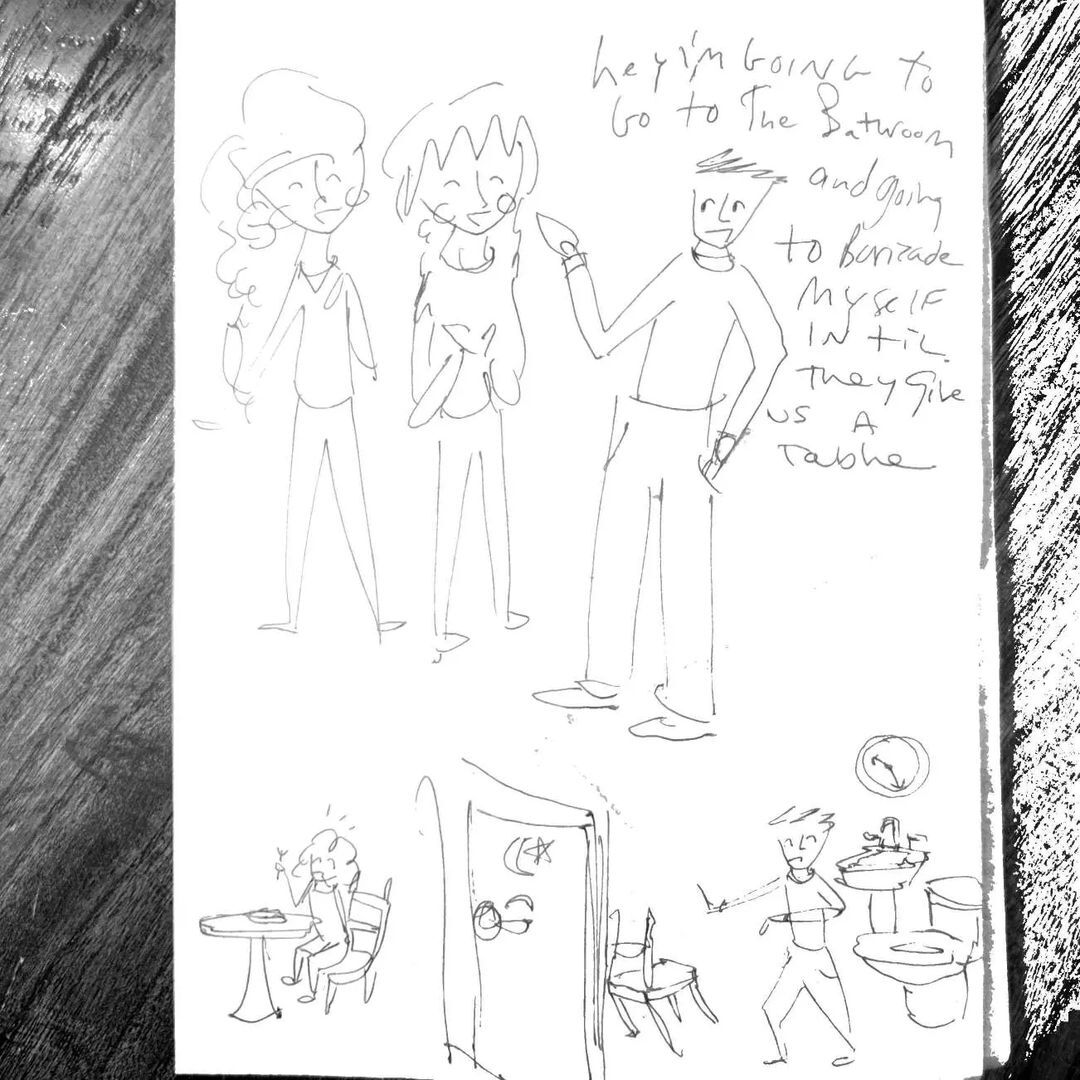 hey i'm GOING to
Go to The Bathroom
and going
to Barricade
MYSELF
IN til
they Give
us A
Table